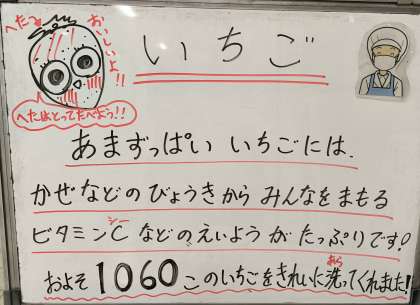 へた→
おいしいよ!!
いちご
へたはとってたべよう!!
あまずっぱい いちごには、
かぜなどの びょうきから みんなを まもる
ビタミンC などの、えいよう が たっぷりです!
シー
およそ 1060 こ のいちごをきれいに洗ってくれました!
あら